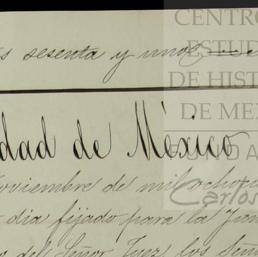 s sesenta y uno
dad de México
oviembre de mil ocho
dia fijado para la Jun
del Señor Juez los Seño
CENTRO
ESTUD
DE HIST
DE MEX
FUNDA
Carlos